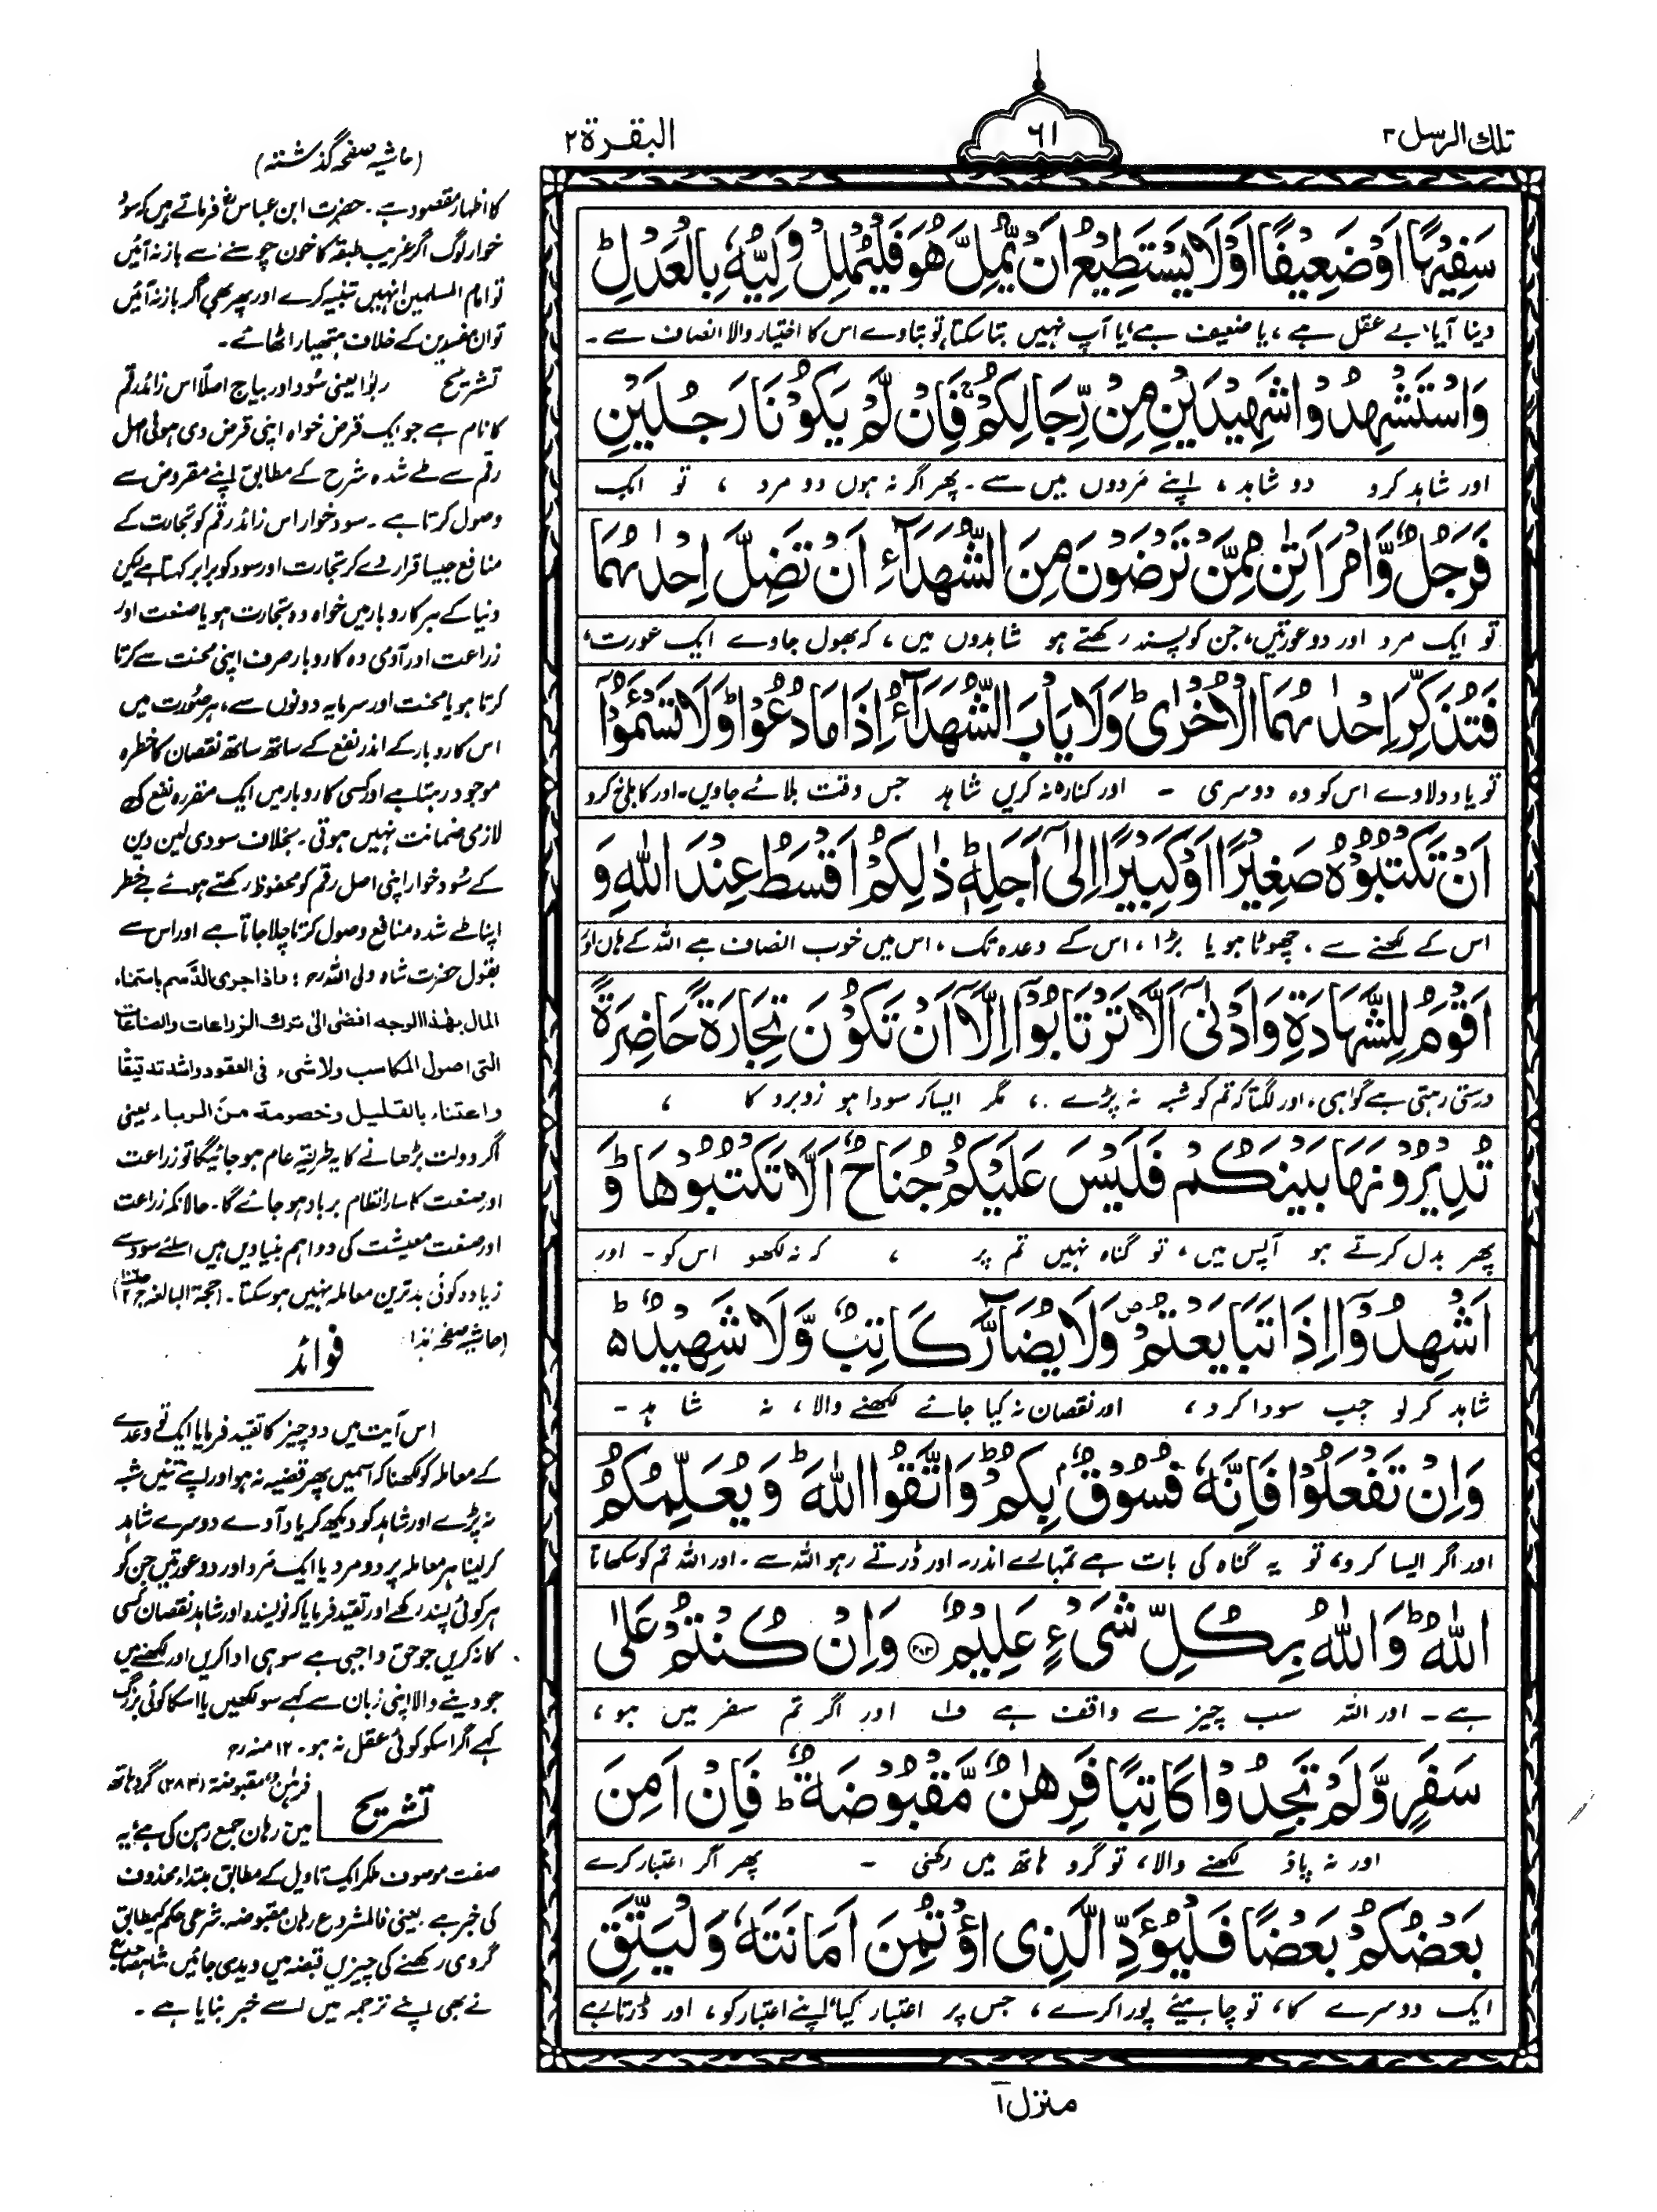 تلك الرسل ۳
۶۱
البقرة ۲
سَفِيْهًا اَوْ ضَعِيْفًا اَوْ لَا يَسْتَطِيْعُ اَنْ يُّمِلَّ هُوَ فَلْيُمْلِلْ وَلِيُّهٗ بِالْعَدْلِ ؕ
دینا آیا، بے عقل ہے ، یا ضعیف ہے، یا آپ نہیں بتا سکتا، تو بتاوے اس کا اختیار والا انصاف سے ۔
وَاسْتَشْهِدُوْا شَهِيْدَيْنِ مِنْ رِّجَالِكُمْ ۚ فَاِنْ لَّمْ يَكُوْنَا رَجُلَيْنِ
اور شاہد کرو دو شاہد ، اپنے مَردوں میں سے ۔ پھر اگر نہ ہوں دو مرد ، تو ایک
فَرَجُلٌ وَّامْرَاَتٰنِ مِمَّنْ تَرْضَوْنَ مِنَ الشُّهَدَآءِ اَنْ تَضِلَّ اِحْدٰىهُمَا
تو ایک مرد اور دو عورتیں، جن کو پسند رکھتے ہو شاہدوں میں ، کہ بھول جاوے ایک عورت،
فَتُذَكِّرَ اِحْدٰىهُمَا الْاُخْرٰى ؕ وَلَا يَاْبَ الشُّهَدَآءُ اِذَا مَا دُعُوْا ؕ وَلَا تَسْئَمُوْٓا
تو یاد دلاوے اس کو وہ دوسری ۔ اور کنارہ نہ کریں شاہد جس وقت بلائے جاویں ۔ اور کاہلی نہ کرو
اَنْ تَكْتُبُوْهُ صَغِيْرًا اَوْ كَبِيْرًا اِلٰٓى اَجَلِهٖ ؕ ذٰلِكُمْ اَقْسَطُ عِنْدَ اللّٰهِ وَ
اس کے لکھنے سے ، چھوٹا ہو یا بڑا ، اس کے وعدہ تک ، اس میں خوب انصاف ہے اللہ کے ہاں اور
اَقْوَمُ لِلشَّهَادَةِ وَاَدْنٰٓى اَلَّا تَرْتَابُوْٓا اِلَّآ اَنْ تَكُوْنَ تِجَارَةً حَاضِرَةً
درستی رہتی ہے گواہی، اور لگتا کہ تم کو شبہ نہ پڑے ، مگر ایسا کہ سودا ہو روبرو کا ،
تُدِيْرُوْنَهَا بَيْنَكُمْ فَلَيْسَ عَلَيْكُمْ جُنَاحٌ اَلَّا تَكْتُبُوْهَا ؕ وَ
پھر بدل کرتے ہو آپس میں ، تو گناہ نہیں تم پر ، کہ نہ لکھو اس کو ۔ اور
اَشْهِدُوْٓا اِذَا تَبَايَعْتُمْ ۪ وَلَا يُضَآرَّ كَاتِبٌ وَّلَا شَهِيْدٌ ؕ۵
شاہد کر لو جب سودا کرو ، اور نقصان نہ کیا جائے لکھنے والا ، نہ شاہد ۔
وَاِنْ تَفْعَلُوْا فَاِنَّهٗ فُسُوْقٌۢ بِكُمْ ؕ وَاتَّقُوا اللّٰهَ ؕ وَيُعَلِّمُكُمُ
اور اگر ایسا کرو، تو یہ گناہ کی بات ہے تمہارے اندر۔ اور ڈرتے رہو اللہ سے ۔ اور اللہ تم کو سکھاتا
اللّٰهُ ؕ وَاللّٰهُ بِكُلِّ شَىْءٍ عَلِيْمٌ ۲۸۲ وَاِنْ كُنْتُمْ عَلٰى
ہے ۔ اور اللہ سب چیز سے واقف ہے ف۱ اور اگر تم سفر میں ہو ،
سَفَرٍ وَّلَمْ تَجِدُوْا كَاتِبًا فَرِهٰنٌ مَّقْبُوْضَةٌ ؕ فَاِنْ اَمِنَ
اور نہ پاؤ لکھنے والا ، تو گرو ہاتھ میں رکھنی ۔ پھر اگر اعتبار کرے
بَعْضُكُمْ بَعْضًا فَلْيُؤَدِّ الَّذِى اؤْتُمِنَ اَمَانَتَهٗ وَلْيَتَّقِ
ایک دوسرے کا ، تو چاہیئے پورا کرے ، جس پر اعتبار کیا، اپنے اعتبار کو ، اور ڈرتا رہے
منزل ۱
(حاشیہ صفحہ گذشتہ)
کا اظہار مقصود ہے ۔ حضرت ابن عباسؓ فرماتے ہیں کہ سود
خوار لوگ اگر غریب طبقہ کا خون چوسنے سے باز نہ آئیں
تو امام المسلمین انہیں تنبیہ کرے اور پھر بھی اگر باز نہ آئیں
تو ان مفسدین کے خلاف ہتھیار اٹھائے ۔
تشریح ربوٰا یعنی سُود اور بیاج اصلاً اس زائد رقم
کا نام ہے جو ایک قرض خواہ اپنی قرض دی ہوئی اصل
رقم سے طے شدہ شرح کے مطابق اپنے مقروض سے
وصول کرتا ہے ۔ سود خوار اس زائد رقم کو تجارت کے
منافع جیسا قرار دے کر تجارت اور سود کو برابر کہتا ہے لیکن
دنیا کے ہر کاروبار میں خواہ وہ تجارت ہو یا صنعت اور
زراعت اور آدمی وہ کاروبار صرف اپنی محنت سے کرتا
کرتا ہو یا محنت اور سرمایہ دونوں سے، ہر صُورت میں
اس کاروبار کے اندر نفع کے ساتھ ساتھ نقصان کا خطرہ
موجود رہتا ہے اور کسی کاروبار میں ایک مقررہ نفع کی
لازمی ضمانت نہیں ہوتی ۔ بخلاف سودی لین دین
کے سُود خوار اپنی اصل رقم کو محفوظ رکھتے ہوئے بے خطر
اپنا طے شدہ منافع وصول کرتا چلا جاتا ہے اور اس سے
بقول حضرت شاہ ولی اللہ رح ؛ فاذا جرى الرسم باستنماء
المال بهٰذا الوجه افضٰى الىٰ ترك الزراعات والصناعات
التى اصول المكاسب ولا شىء فى العقود واشد تدقيقًا
واعتناء بالقليل وخصومة من الرباء یعنی
اگر دولت بڑھانے کا یہ طریقہ عام ہو جائیگا تو زراعت
اور صنعت کا سارا نظام برباد ہو جائے گا ۔ حالانکہ زراعت
اور صنعت معیشت کی دو اہم بنیادیں ہیں اسلئے سود سے
زیادہ کوئی بدترین معاملہ نہیں ہو سکتا ۔ (حجۃ البالغہ ج ۲ ص ۱۰۶)
(حاشیہ صفحہ ہٰذا)
فوائد
اس آیت میں دو چیز کا تقید فرمایا ایک تو وعدے
کے معاملہ کو لکھنا کہ اسمیں پھر قضیہ نہ ہو اور اپنے تئیں شبہ
نہ پڑے اور شاہد کو دیکھ کر یاد آوے دوسرے شاہد
کر لینا ہر معاملہ پر دو مرد یا ایک مَرد اور دو عورتیں جن کو
ہر کوئی پسند رکھے اور تقید فرمایا کہ نویسندہ اور شاہد نقصان کسی
کا نہ کریں جو حق واجبی ہے سو ہی ادا کریں اور لکھنے میں
جو دینے والا اپنی زبان سے کہے سو لکھیں یا اسکا کوئی بزرگ
کہے اگر اسکو کوئی عقل نہ ہو ۔ ۱۲ منہ رح
تشریح فرہٰن مقبوضۃ (۲۸۳) گرو ہاتھ
میں رہان جمع رہن کی ہے، یہ
صفت موصوف ملکر ایک تاویل کے مطابق مبتداء محذوف
کی خبر ہے ۔ یعنی فالمشروع رہان مقبوضہ ۔ شرعی حکم کیمطابق
گروی رکھنے کی چیزیں قبضہ میں دیدی جائیں شاہ صاحب
نے بھی اپنے ترجمہ میں اسے خبر بنایا ہے ۔